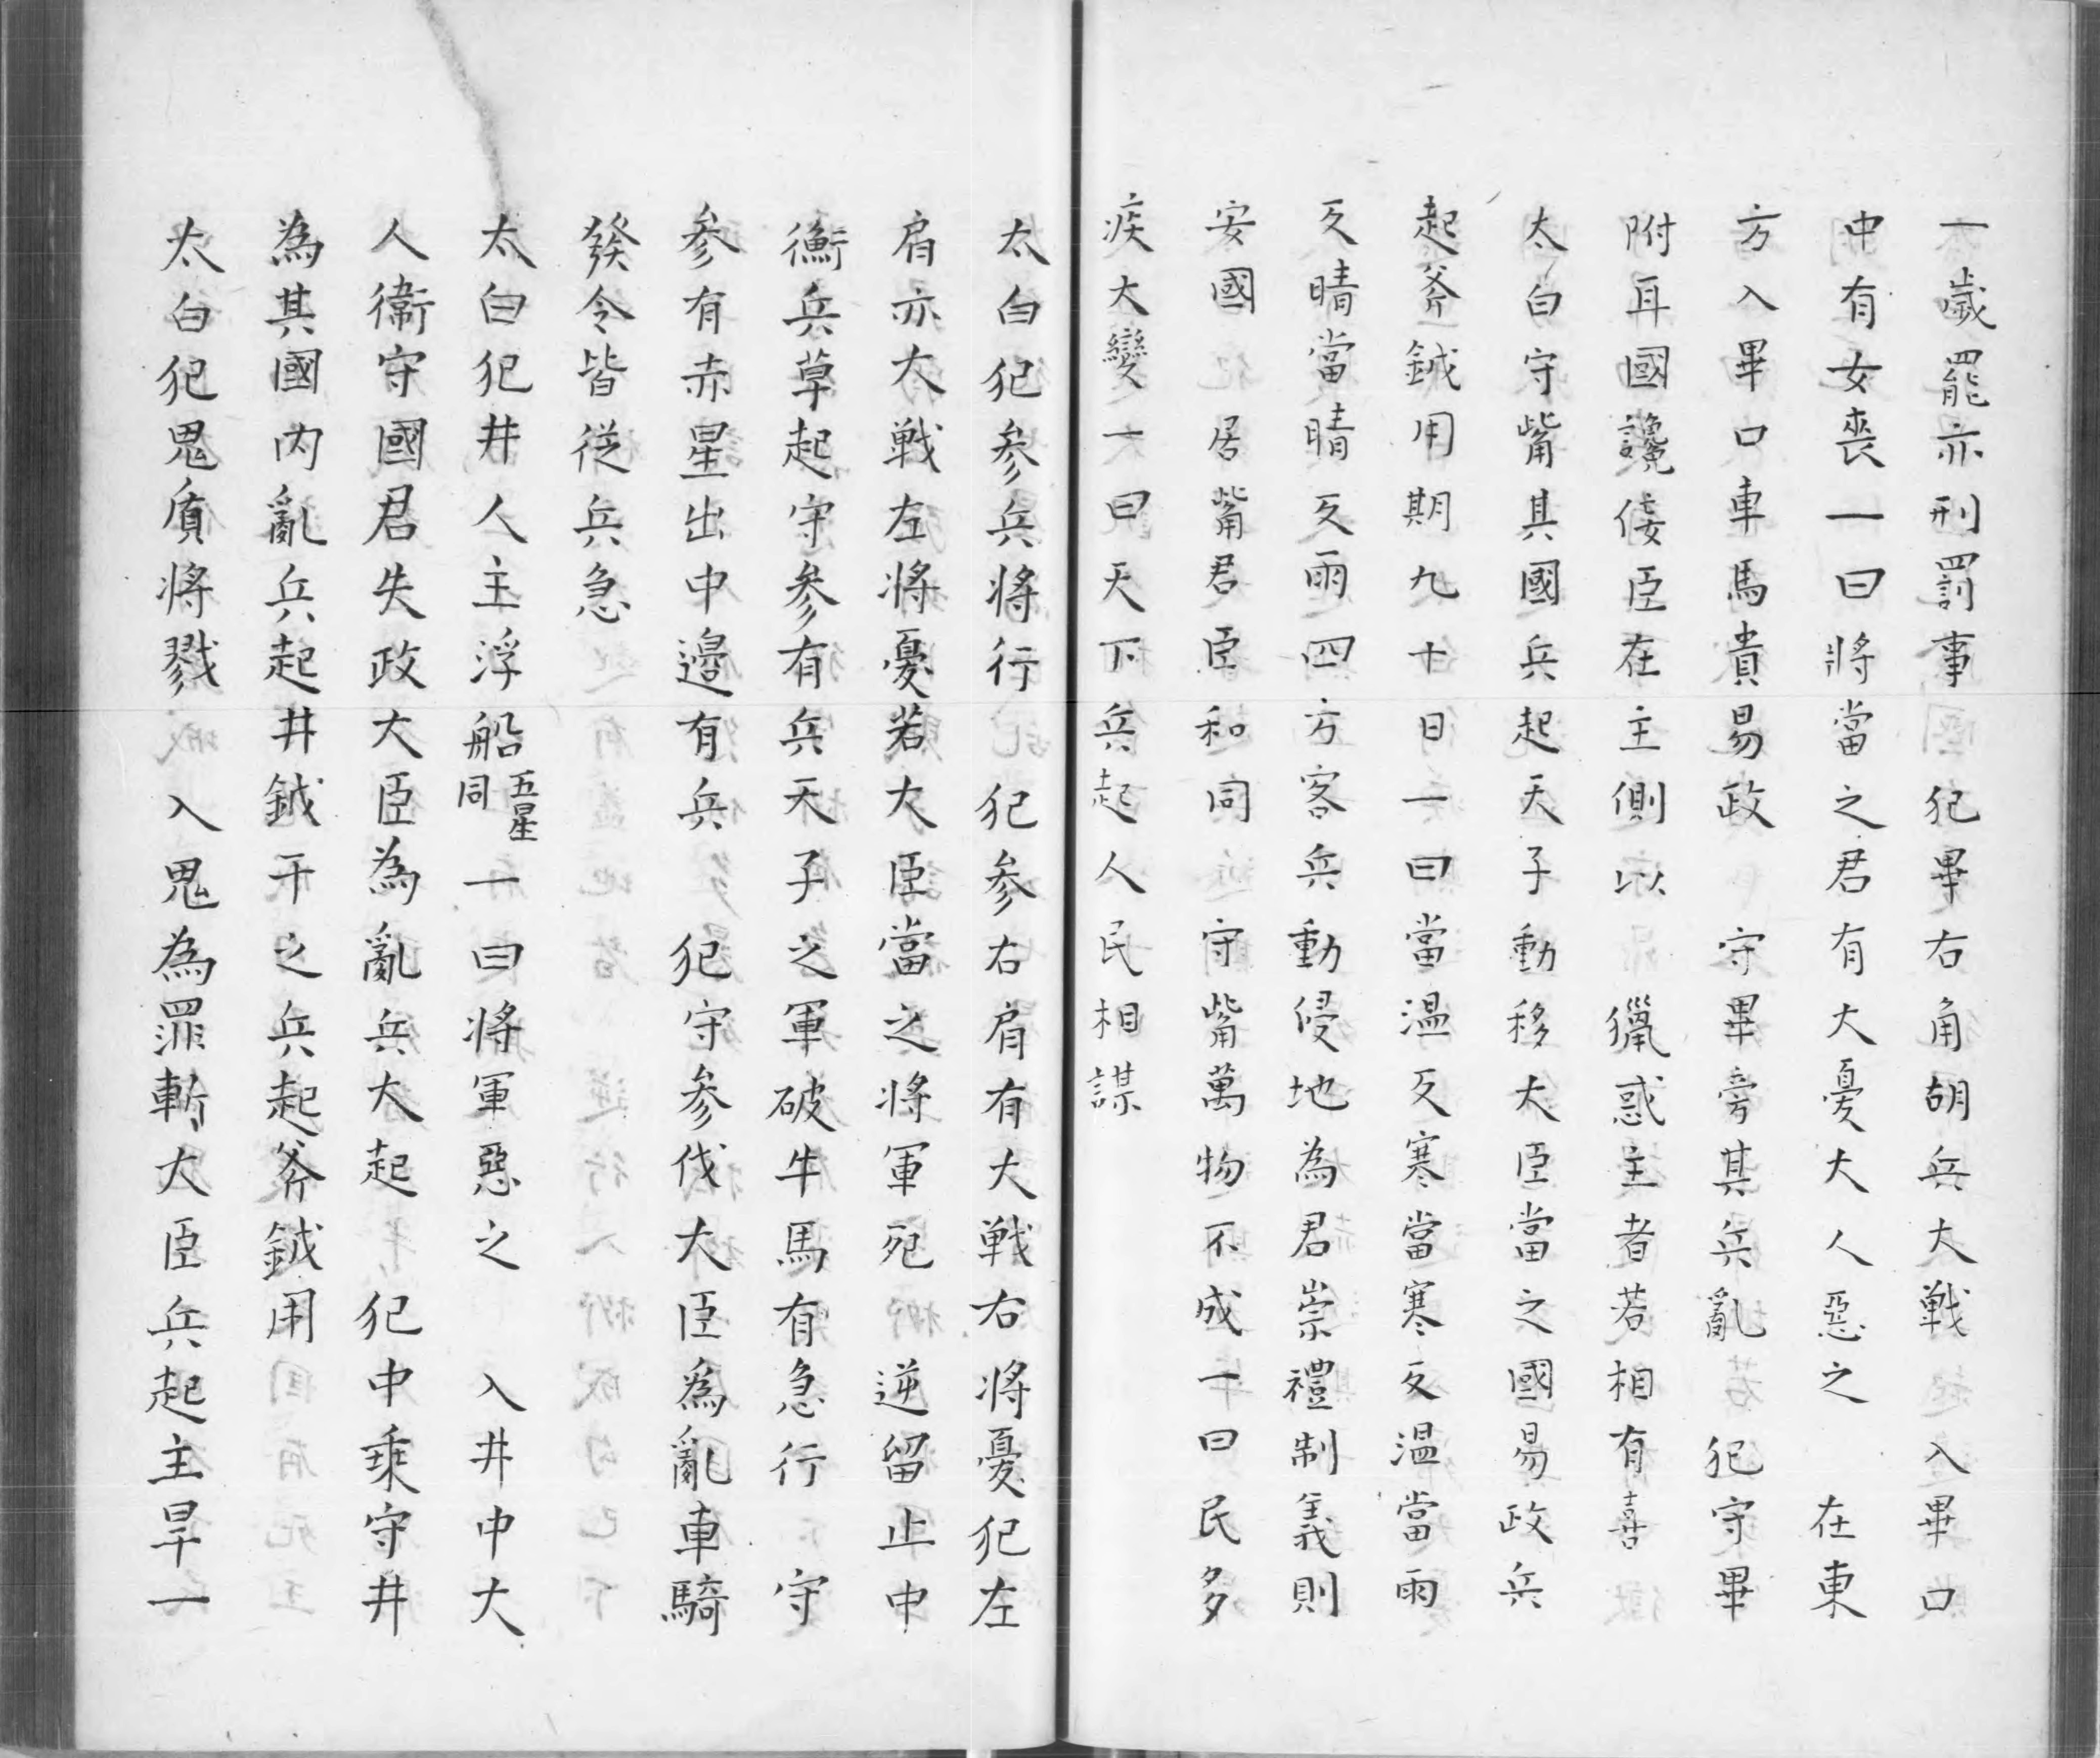 一歲罷亦刑罰事　犯畢右角胡兵大戰　入畢口
中有女喪一曰將當之君有大憂大人惡之　在東
方入畢口車馬貴易政　守畢旁其兵亂　犯守畢
附耳國讒佞臣在主側以　獵惑主者若相有喜
太白守觜其國兵起天子動移大臣當之國易政兵
起斧鉞用期九十日一曰當温反寒當寒反温當雨
反晴當晴反雨四方客兵動侵地為君崇禮制義則
安國　居觜君臣和同　守觜萬物不成一曰民多
疾大變一曰天下兵起人民相謀
太白犯参兵將行　犯参右肩有大戰右將憂犯左
肩亦大戰左將憂若大臣當之將軍死　逆留止中
衡兵草起守参有兵天子之軍破牛馬有急行　守
参有赤星出中邉有兵　犯守参伐大臣為亂車騎
發令皆從兵急
太白犯井人主浮船五星同一曰將軍惡之　入井中大
人衞守國君失政大臣為亂兵大起　犯中乗守井
為其國内亂兵起井鉞干之兵起斧鉞用
太白犯鬼質將戮　入鬼為罪斬大臣兵起主旱一